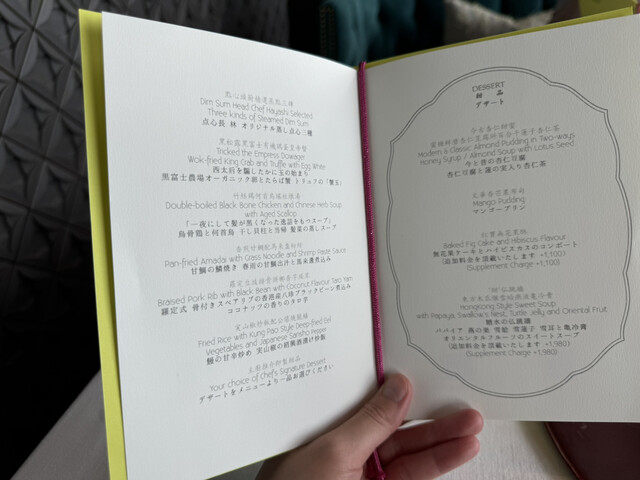 Dim Sum Head Chef Hayashi Selected
Three kinds of Steamed Dim Sum
点心長 林 オリジナル蒸し点心三種
Tricked the Empress Dowager
Wok-fried King Crab and Truffle with Egg White
西太后を騙したかに玉の始まり
黒富士農場オーガニック卵とたらば蟹 トリュフの「蟹玉」
Double-boiled Black Bone Chicken and Chinese Herb Soup
with Aged Scallop
「一夜にして髪が黒くなった逸話をもつスープ」
烏骨鶏と何首烏 干し貝柱と当帰 髪菜の蒸しスープ
Pan-fried Amadai with Grass Noodle and Shrimp Paste Sauce
甘鯛の鱗焼き 春雨の甘鯛出汁と蝦米醬煮込み
Braised Pork Rib with Black Bean with Coconut Flavour Taro Yam
羅定式 骨付きスペアリブの香港産八珍ブラックビーン煮込み
ココナッツの香りのタロ芋
Fried Rice with Kung Pao Style Deep-fried Eel
Vegetables and Japanese Sansho Pepper
鰻の甘辛炒め 実山椒の胡麻醬漬け炒飯
Your choice of Chef's Signature Dessert
デザートをメニューより一品お選びください
DESSERT
甜 品
デザート
Modern & Classic Almond Pudding in Two-ways
Honey Syrup / Almond Soup with Lotus Seed
今と昔の杏仁豆腐
杏仁豆腐と蓮の実入り杏仁茶
Mango Pudding
マンゴープリン
Baked Fig Cake and Hibiscus Flavour
無花菓ケーキとハイビスカスのコンポート
(追加料金を頂戴いたします +1,100)
(Supplement Charge +1,100)
HongKong Style Sweet Soup
with Papaya, Swallow's Nest, Turtle Jelly and Oriental Fruit
糖水の仏跳牆
パパイア 燕の巣 雪蛤 雪蓮子 雪耳と亀冷膏
オリエンタルフルーツのスイートスープ
(追加料金を頂戴いたします +1,980)
(Supplement Charge +1,980)